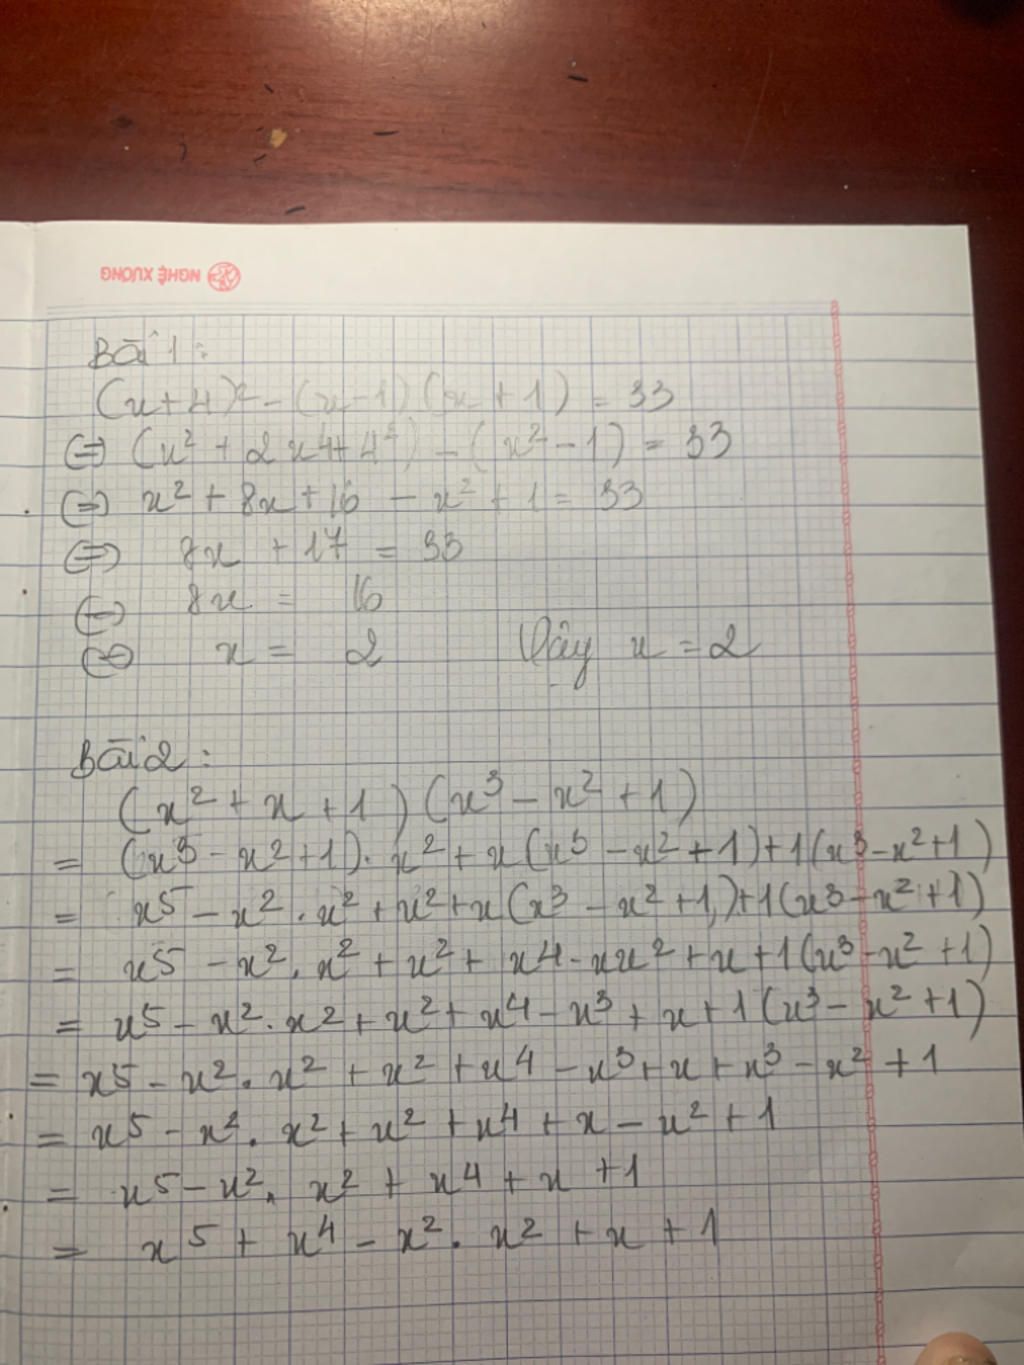 NGHỆ XƯƠNG
Bài 1:
(x+4)² - (x-1)(x+1) = 33
⇔ (x² + 2x4+4²) - (x²-1) = 33
⇔ x² + 8x+16 - x² + 1 = 33
⇔ 8x + 17 = 33
⇔ 8x = 16
⇔ x = 2 Vậy x = 2
Bài 2:
(x² + x + 1)(x³ - x² + 1)
= (x³ - x²+1). x² + x(x³ - x² + 1)+1(x³-x²+1)
= x5 - x². x² + x²+x(x³ - x² +1,)+1(x³-x²+1)
= x5 - x². x² + x² + x4 - xx² + x +1(x³-x² +1)
= x5 - x². x² + x² + x4 - x³ + x+1(x³- x² +1)
= x5 - x². x² + x² + x4 - x³ + x + x³ - x² + 1
= x5 - x². x² + x² + x4 + x - x² + 1
= x5 - x². x² + x4 + x + 1
= x5 + x4 - x². x² + x + 1